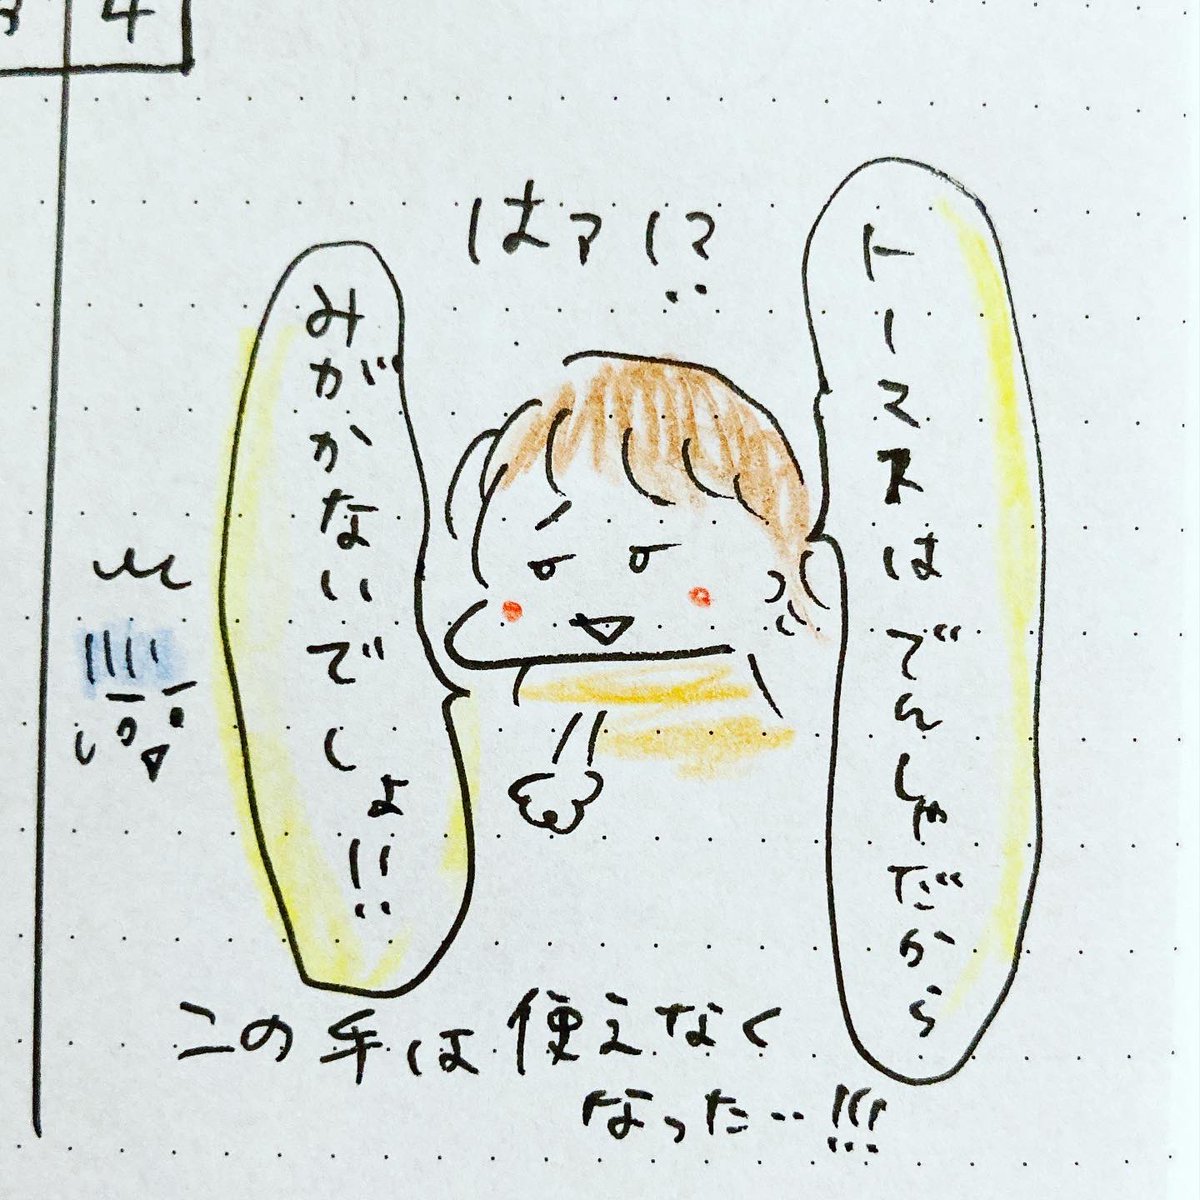 4
はァ!?
トーマスはでんしゃだから
みがかないでしょ!!
この手は使えなく
なった…!!!